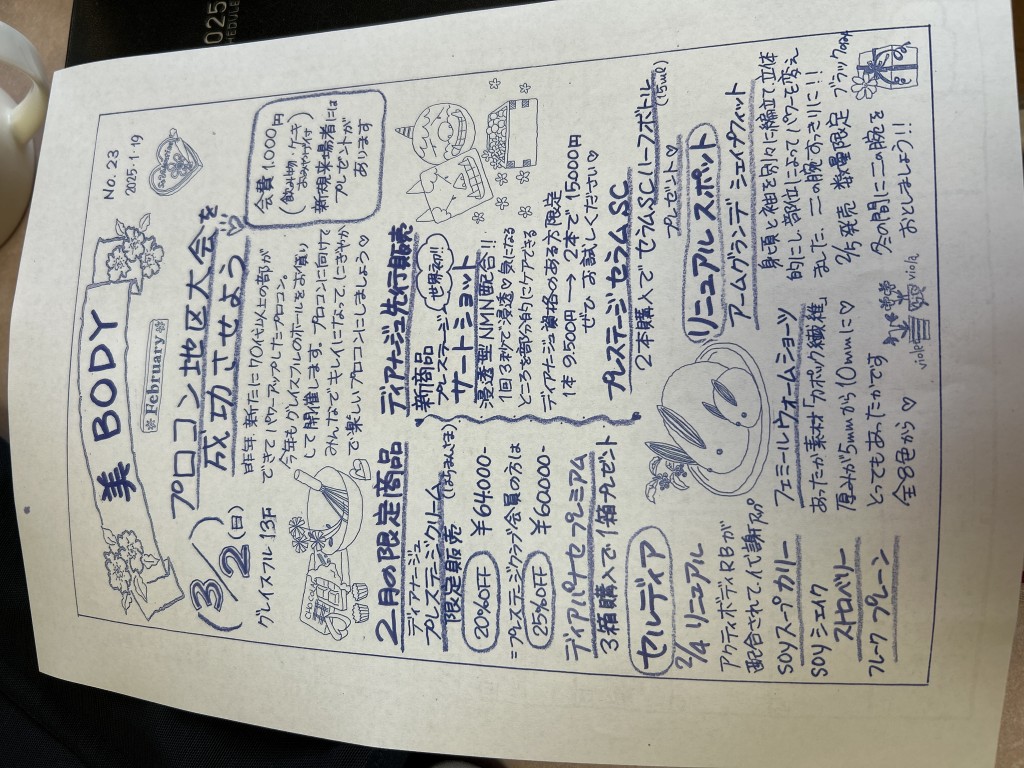 025
HEDULE
美 BODY
No. 23
2025.1.19
February
3/2(日)
グレイスフル 13F
プロコン地区大会を
成功させよう♡
昨年、新たに70才代以上の部が
できて パワーアップしたプロコン。
今年もグレイスフルのホールをお借り
して開催します。プロコンに向けて
みんなでキレイになって、にぎやか
で楽しいプロコンにしましょう♡
会費 1,000円
(飲み物・ケーキ
おみやげ付)
新規来場者には
プレゼントが
あります
2月の限定商品
ディアナージュ
プレステージクリーム
限定販売 (はるみんは)
20%OFF ￥64,000-
=プレステージクラブ会員の方は
25%OFF ￥60,000-
ディアパーナセプレミアム
3箱購入で1箱プレゼント
ディアナージュ先行販売
新商品
プレステージ 世界初!!
サートショット
浸透型NMN配合!!
1回3秒で浸透♡気になる
ところを部分的にケアできる
ディアナージュ資格のある方限定
1本 9,500円→2本で15,000円
ぜひ お試しください♡
プレステージセラムSC
2本購入で セラムSCハーフボトル
(15ml)
プレゼント♡
セルディア
2/4 リニューアル
アクティボディRBが
配合されて、代謝アップ
SOYスープカリー
SOYシェイク
ストロベリー
フレーク プレーン
フェミールウォームショーツ
あったか素材「カポック繊維」
厚みが5mmから10mmに♡
とってもあったかです
全8色から♡
violet
viola
リニューアルスポット
アームグランデ シェイクフィット
身頃と袖を別々に編立て、立体
的にし、部位によってパワーを変え
ました、二の腕すっきりに!!
2/5発売 数量限定 ブラックのみ
冬の間に二の腕を
おとしましょう!!!